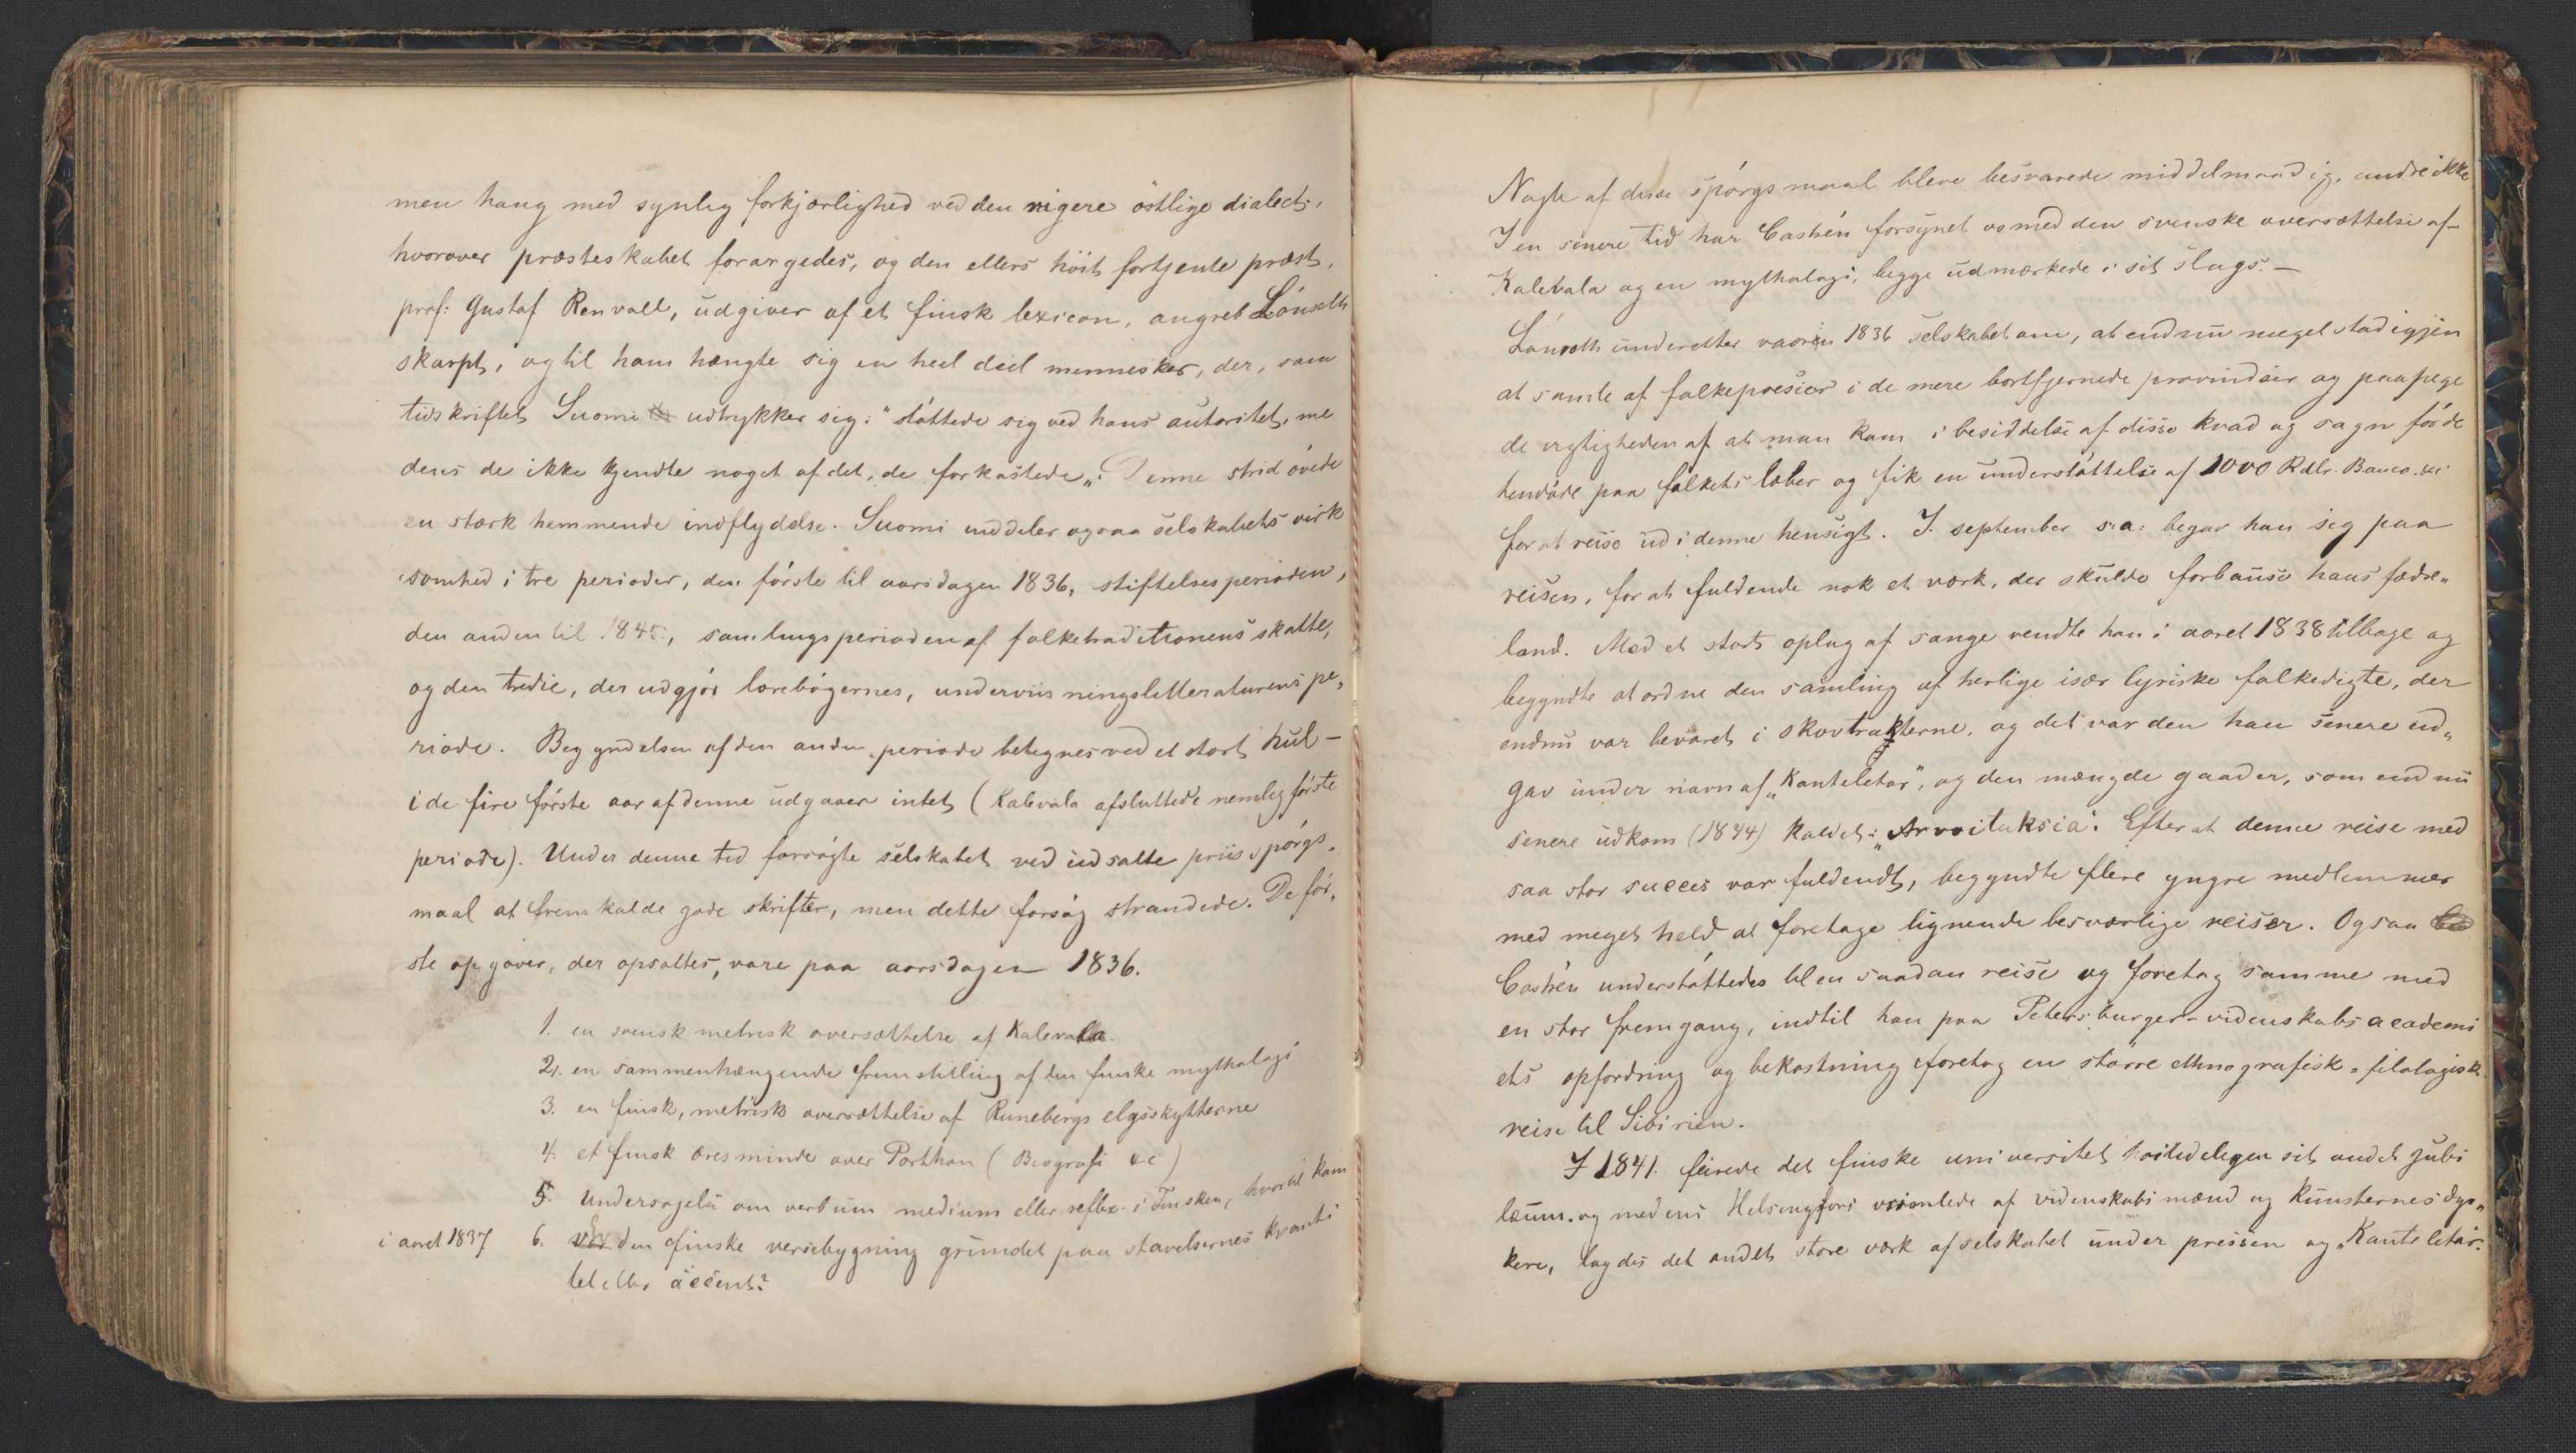 men hang med synlig forkjærlighed ved den rigere östlige dialect,
hvorover præsteskabet forargedes, og den ellers höit fortjente præst,
prof: Gustaf Renvall, udgiver af et finsk lexicon, angreb Lönroth
skarpt, og til ham hængte sig en heel deel mennesker, der, som
tidskriftet Suomi udtrykker sig: "støttede sig ved hans autoritet, me
dens de ikke kjendte noget af det, de forkastede„. Denne strid övede
en stærk hemmende indflydelse. Suomi inddeler ogsaa selskabets virk
somhed i tre perioder, den förste til aarsdagen 1836, stiftelsesperioden,
den anden til 1845, samlingsperioden af folketraditionens skatte,
og den tredie, der udgjör lærebögernes, underviisningslitteraturens pe„
riode. Begyndelsen af den anden periode betegnes ved et stort hul –
i de fire förste aar af denne udgaaer intet (Kalevala afsluttede nemlig förste
periode). Under denne tid forsögte selskabet ved udsatte priisspörgs„
maal at fremkalde gode skrifter, men dette forsög strandede. De för„
ste opgaver, der opsattes, vare paa aarsdagen 1836.
1. en svensk metrisk oversættelse af Kalevala.
2. en sammenhængende fremstilling af den finske mythologi
3. en finsk, metrisk oversættelse af Runebergs elgsskytterne
4. et finsk æresminde over Porthan (Biografi &c)
5. Undersögelse om verbum medium eller reflex. i Finsken, hvortil kom
i aaret 1837 6. Er den finske versebygning grundet paa stavelsernes kvanti
tet eller accent?
Nogle af disse spörgsmaal bleve besvarede middelmaadig, andre ikke
I en senere tid har Castrén forsynet os med den svenske oversættelse af
Kalevala og en mythologi, begge udmærkede i sit slags. –
Lönroth underretter vaaren 1836 selskabet om, at endnu meget stod igjen
at samle af folkepoesier i de mere bortfjernede provindser og paapege
de vigtigheden af at man kom i besiddelse af disse kvad og sagn för de
hendöde paa folkets læber og fik en understöttelse af 1000 Rdlr. Banco &c
for at reise ud i denne hensigt. I september s: a: begav han sig paa
reisen, for at fuldende nok et værk, der skulde forbause hans fædre„
land. Med et stort oplag af sange vendte han i aaret 1838 tilbage og
begyndte at ordne den samling af herlige især lyriske folkedigte, der
endnu var bevaret i skovtrakterne, og det var den han senere ud„
gav under navn af „Kanteletar", og den mængde gaader, som endnu
senere udkom (1844) kaldet: „Arvoituksia". Efter at denne reise med
saa stor succes var fuldendt, begyndte flere yngre medlemmer
med meget held at foretage lignende besværlige reiser. Ogsaa
Castrén understöttedes til en saadan reise og foretog samme med
en stor fremgang, indtil han paa Petersburger-videnskabsacademi
ets opfordring og bekostning foretog en större ethnografisk-filologisk
reise til Sibirien.
I 1841. feirede det finske universitet höitidelegen sit andet jubi
læum. og medens Helsingfors vrimlede af videnskabsmænd og kunsternes dyr„
kere, lagdes det andet store værk af selskabet under pressen og „Kanteletar.